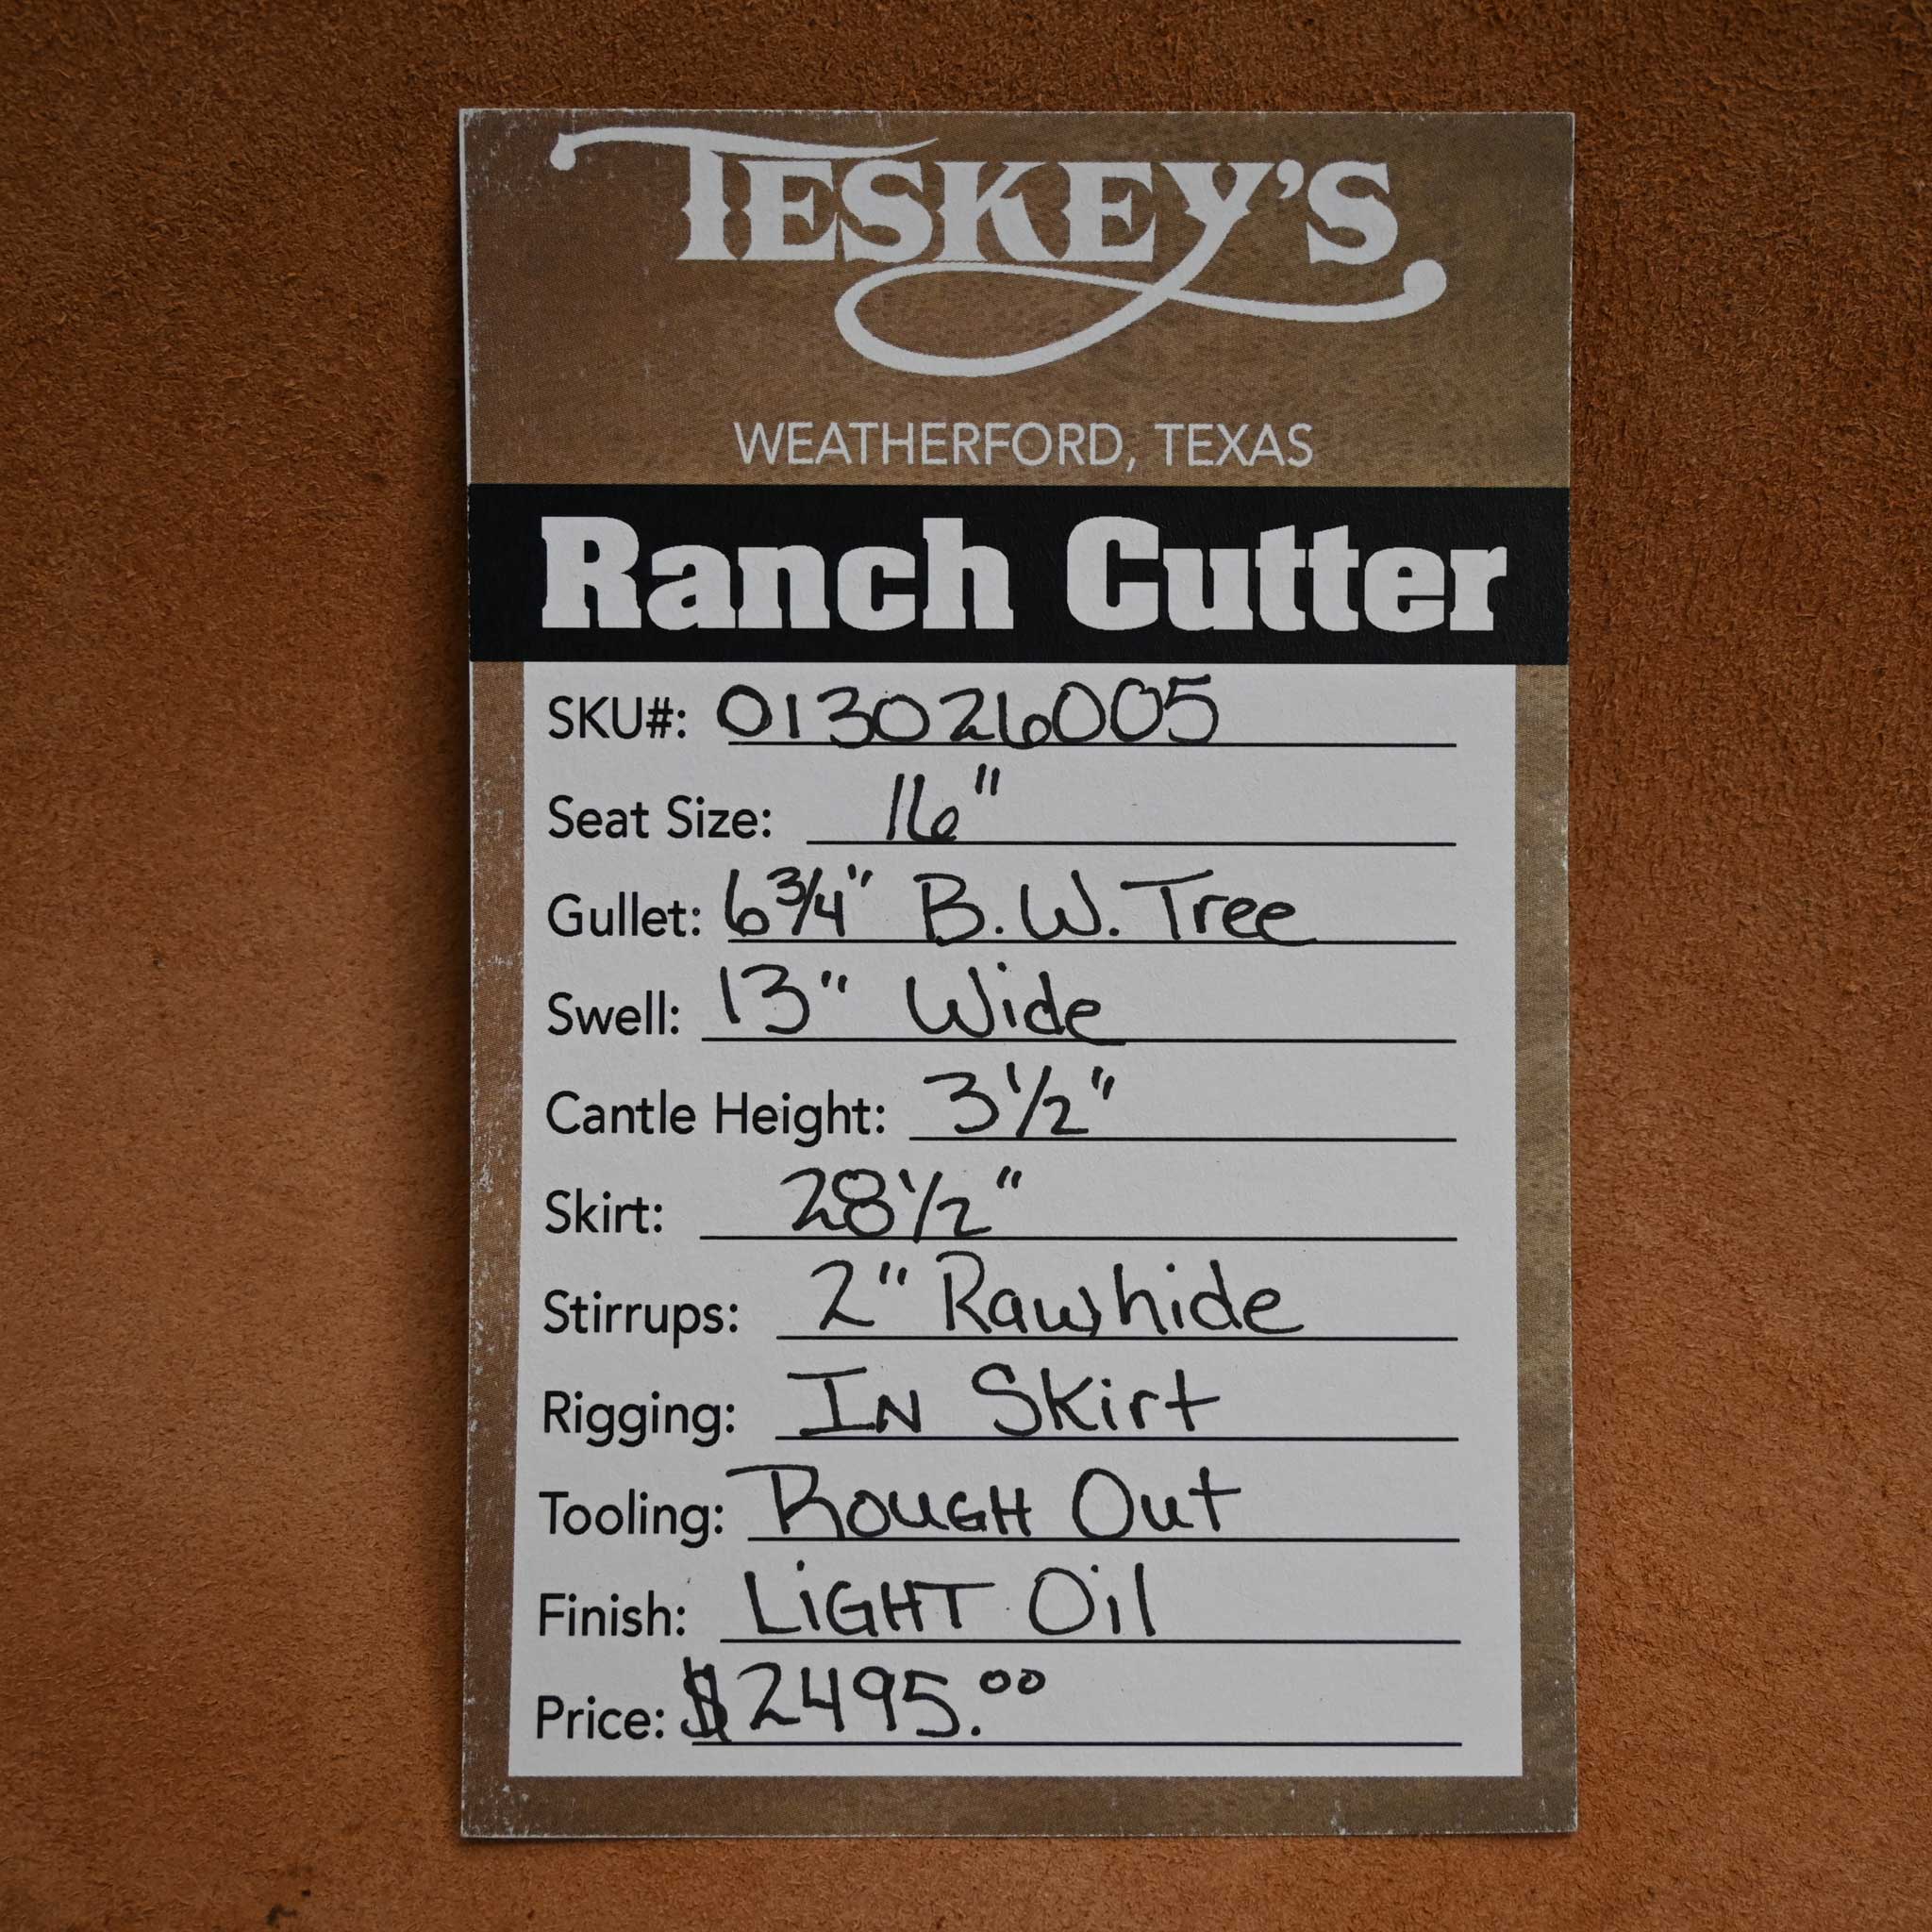 TESKEY'S
WEATHERFORD, TEXAS
Ranch Cutter
SKU#: 013026005
Seat Size: 16"
Gullet: 6 3/4" B.W. Tree
Swell: 13" Wide
Cantle Height: 3 1/2"
Skirt: 28 1/2"
Stirrups: 2" Rawhide
Rigging: IN SKirt
Tooling: ROUGH Out
Finish: LiGHT Oil
Price: $2495.00